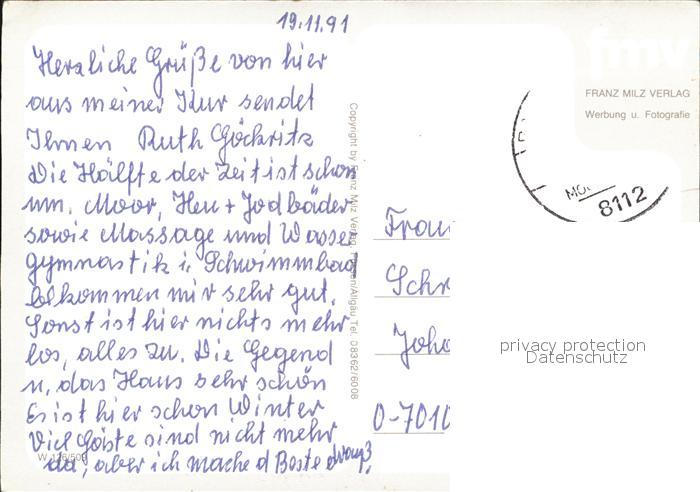 19.11.91
Herzliche Grüße von hier
aus meiner Kur sendet
Ihnen Ruth Göckritz
Die Hälfte der Zeit ist schon
um. Moor, Heu + Jodbäder
sowie Massage und Wasser
gymnastik i. Schwimmbad
bekommen mir sehr gut.
Sonst ist hier nichts mehr
los, alles zu. Die Gegend
u. das Haus sehr schön
Es ist hier schon Winter
Viel Gäste sind nicht mehr
da, aber ich mache d Beste draus.
W 126/509
Copyright by Franz Milz Verlag, Füssen/Allgäu Tel. 08362/6008
fmv
FRANZ MILZ VERLAG
Werbung u. Fotografie
8112
Frau
Schr
Joha
O-7010
privacy protection
Datenschutz